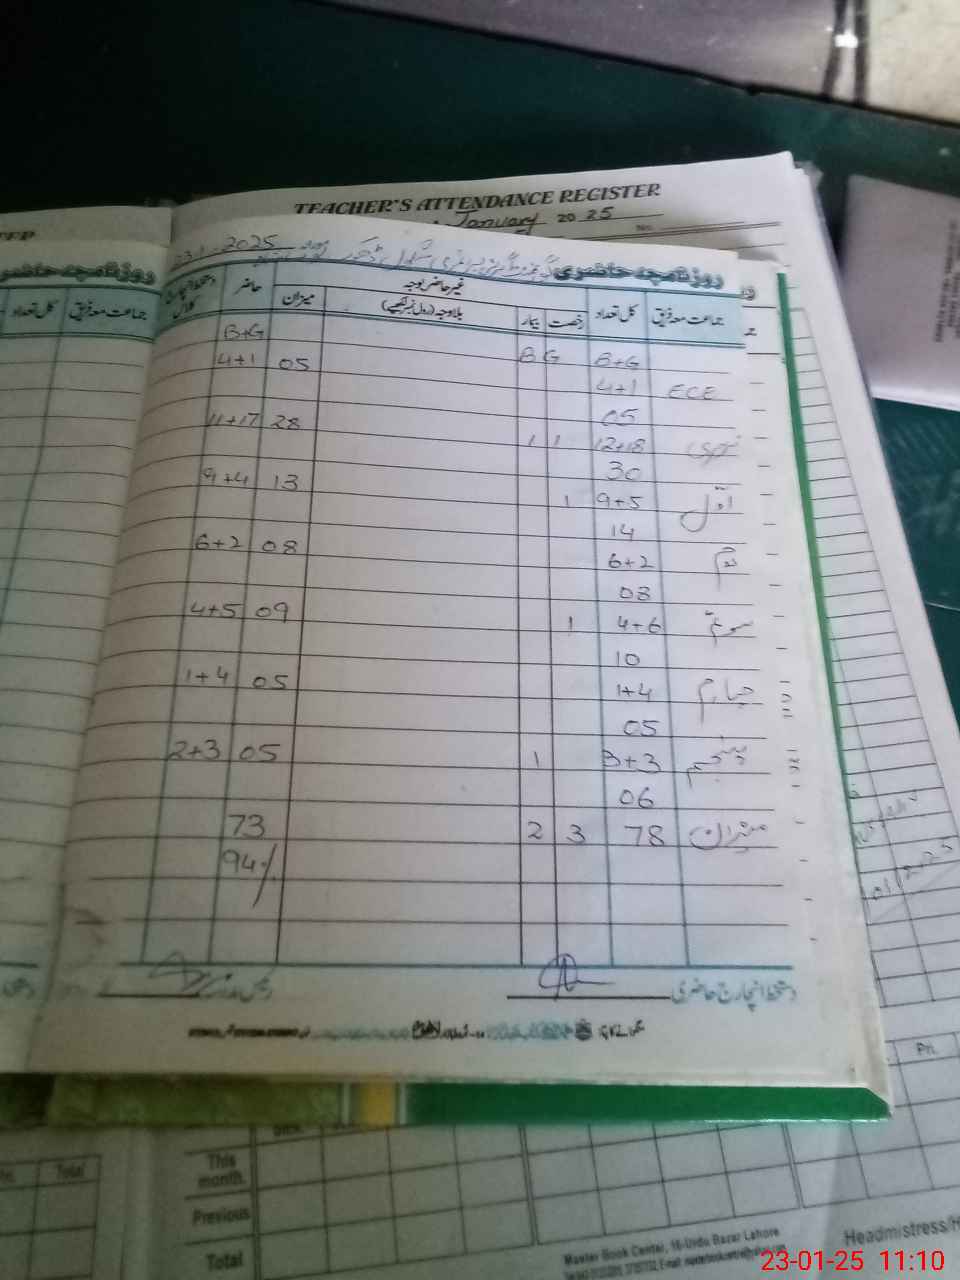 TEACHER'S ATTENDANCE REGISTER
January 2025
No.
روزنامچہ حاضری
23-1-2025
جماعت معہ فریق کل تعداد رخصت بیمار غیر حاضر بوجہ میزان حاضر
بلاوجہ (رول نمبر لکھیے)
B+G B G B+G
ECE 4+1 05 4+1
05
12+18 1 1 28 11+17
30
اول 9+5 1 13 9+4
14
دوم 6+2 08 6+2
08
سوئم 4+6 1 09 4+5
10
چہارم 1+4 05 1+4
05
پنجم 3+3 1 05 2+3
06
میزان 78 3 2 73
94%
دستخط انچارج حاضری
جماعت معہ فریق کل تعداد
روزنامچہ حاضری
Pri.
Total
This month.
Previous
Total
Master Book Center, 16-Urdu Bazar Lahore
Headmistress/H
23-01-25 11:10